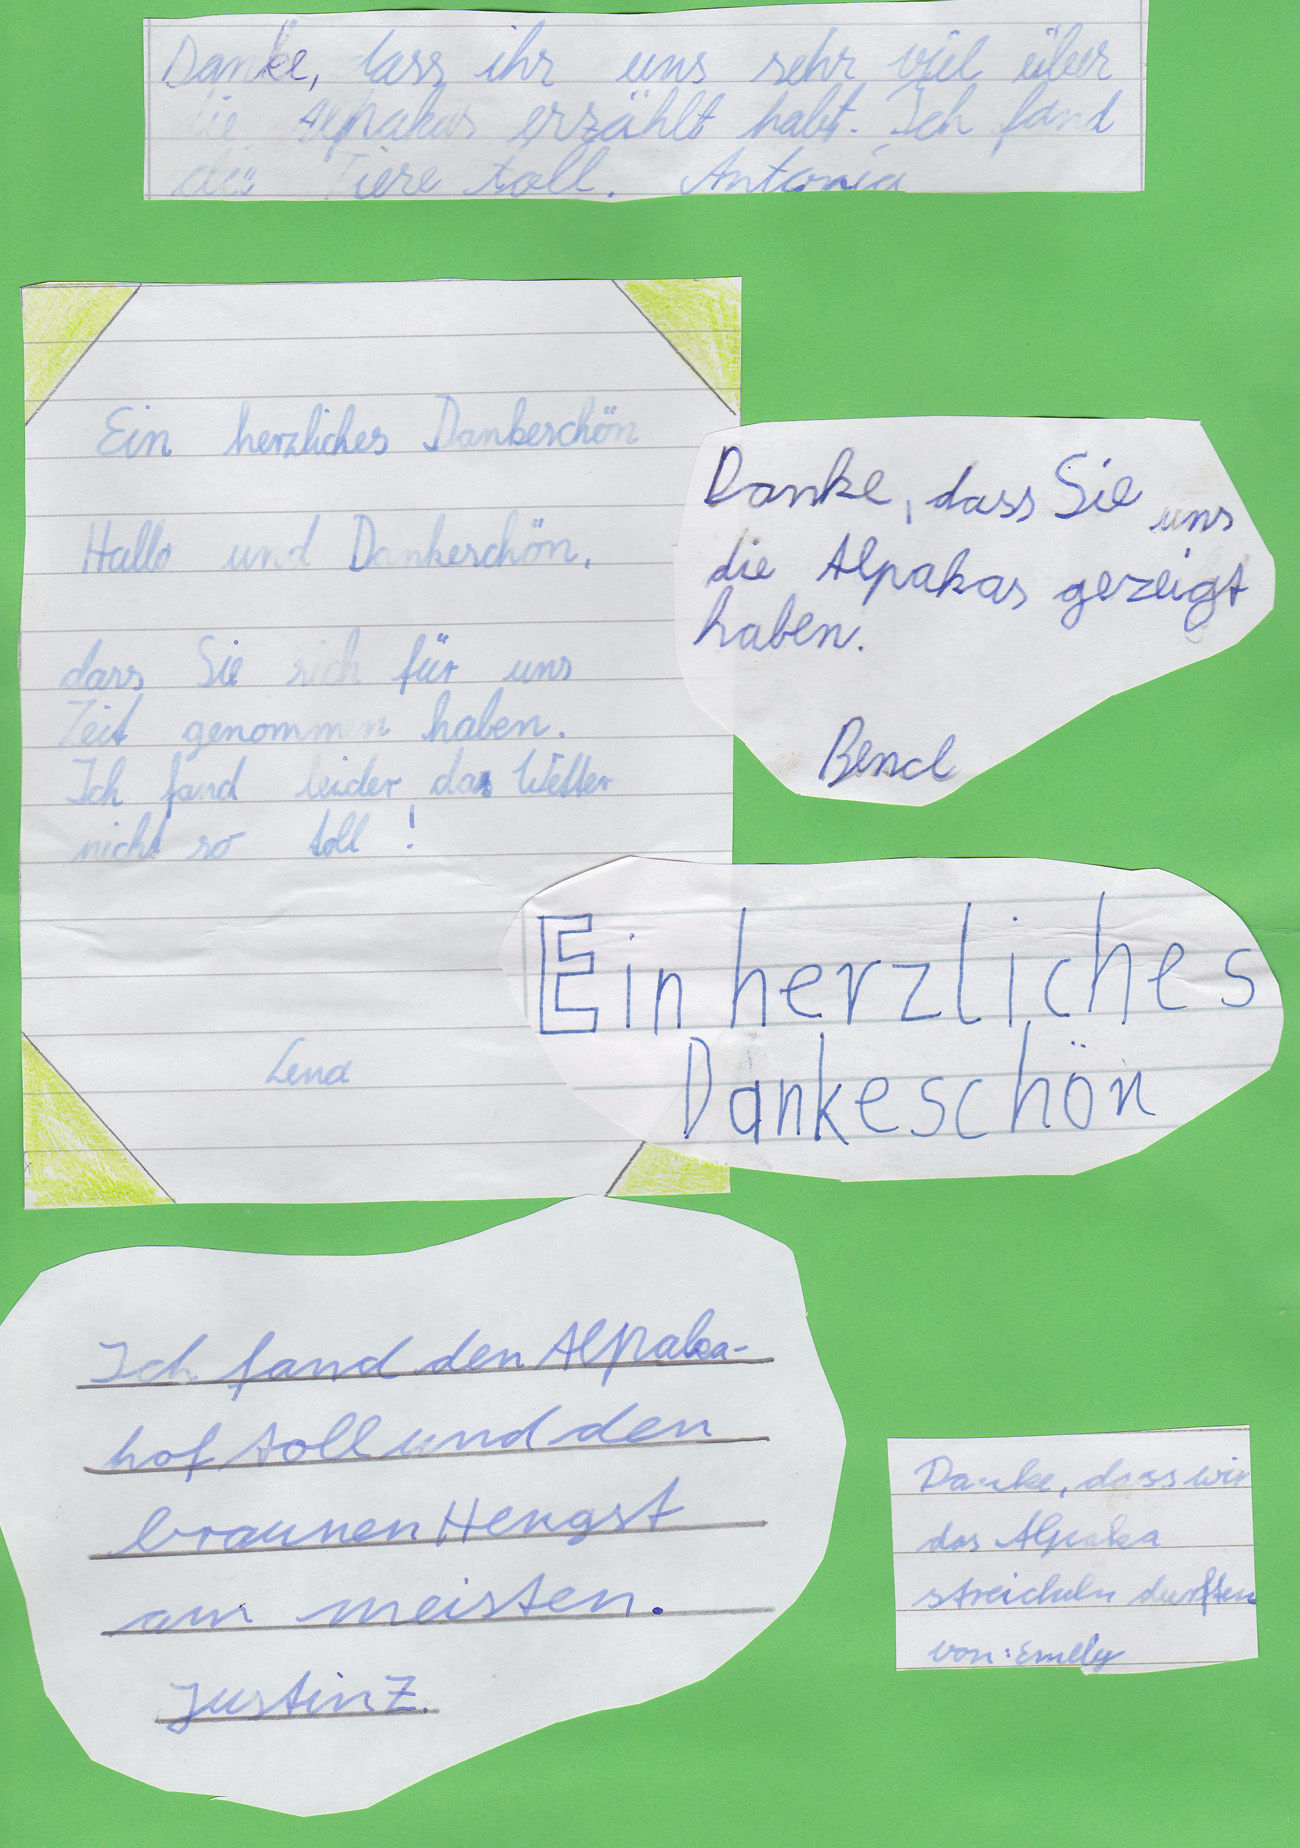 Danke, dass ihr uns sehr viel über
die Alpakas erzählt habt. Ich fand
die Tiere toll. Antonia
Ein herzliches Dankeschön
Hallo und Dankeschön,
dass Sie sich für uns
Zeit genommen haben.
Ich fand leider das Wetter
nicht so toll !
Lena
Danke, dass Sie uns
die Alpakas gezeigt
haben.
Bend
Ein herzliches
Dankeschön
Ich fand den Alpaka-
hof toll und den
braunen Hengst
am meisten.
Justin Z.
Danke, dass wir
das Alpaka
streicheln durften
von: Emely